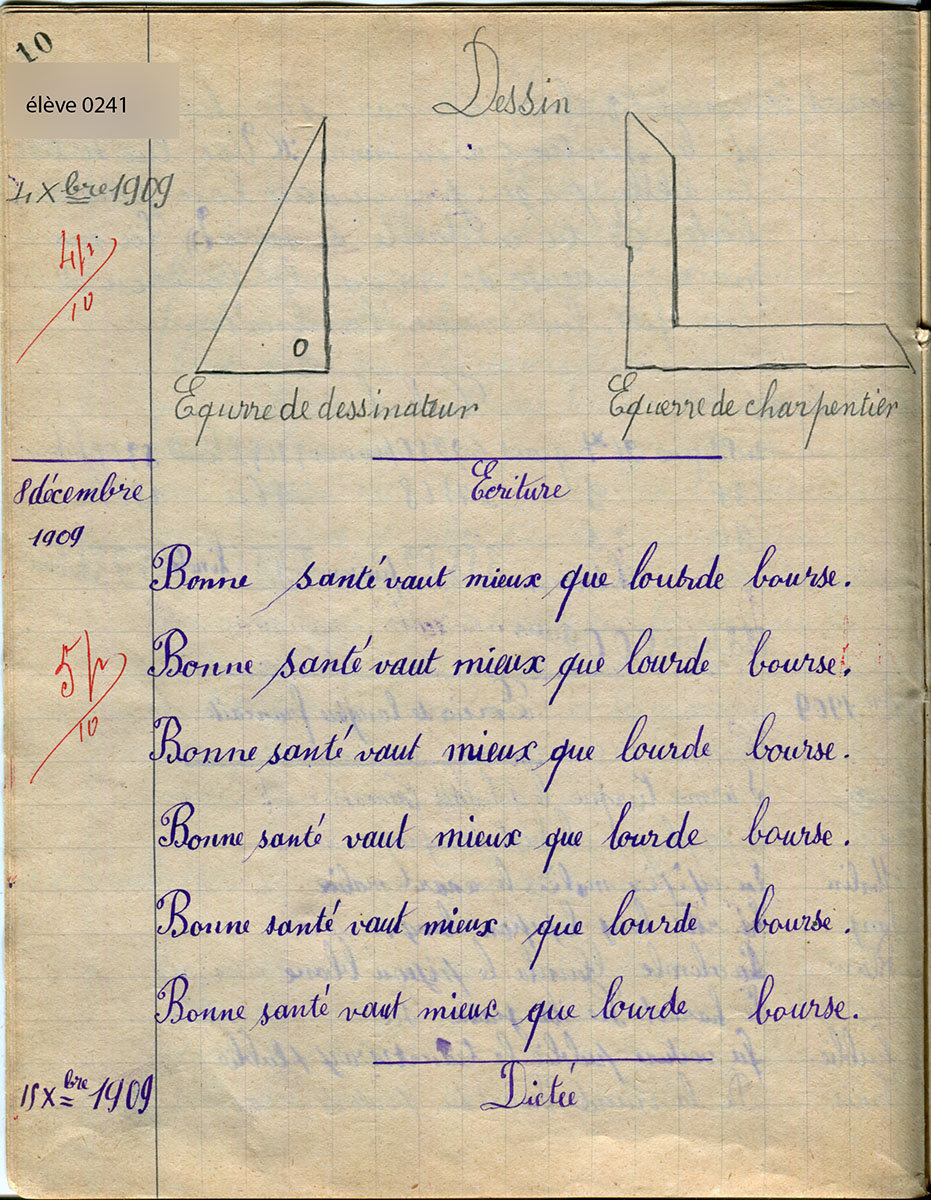 10
élève 0241
Dessin
4 Xbre 1909
4/2
10
Equrre de dessinateur
Equerre de charpentier
8 décembre
1909
Ecriture
Bonne santé vaut mieux que lourde bourse.
5/2
10
Bonne santé vaut mieux que lourde bourse.
Bonne santé vaut mieux que lourde bourse.
Bonne santé vaut mieux que lourde bourse.
Bonne santé vaut mieux que lourde bourse.
Bonne santé vaut mieux que lourde bourse.
15 Xbre 1909
Dictée